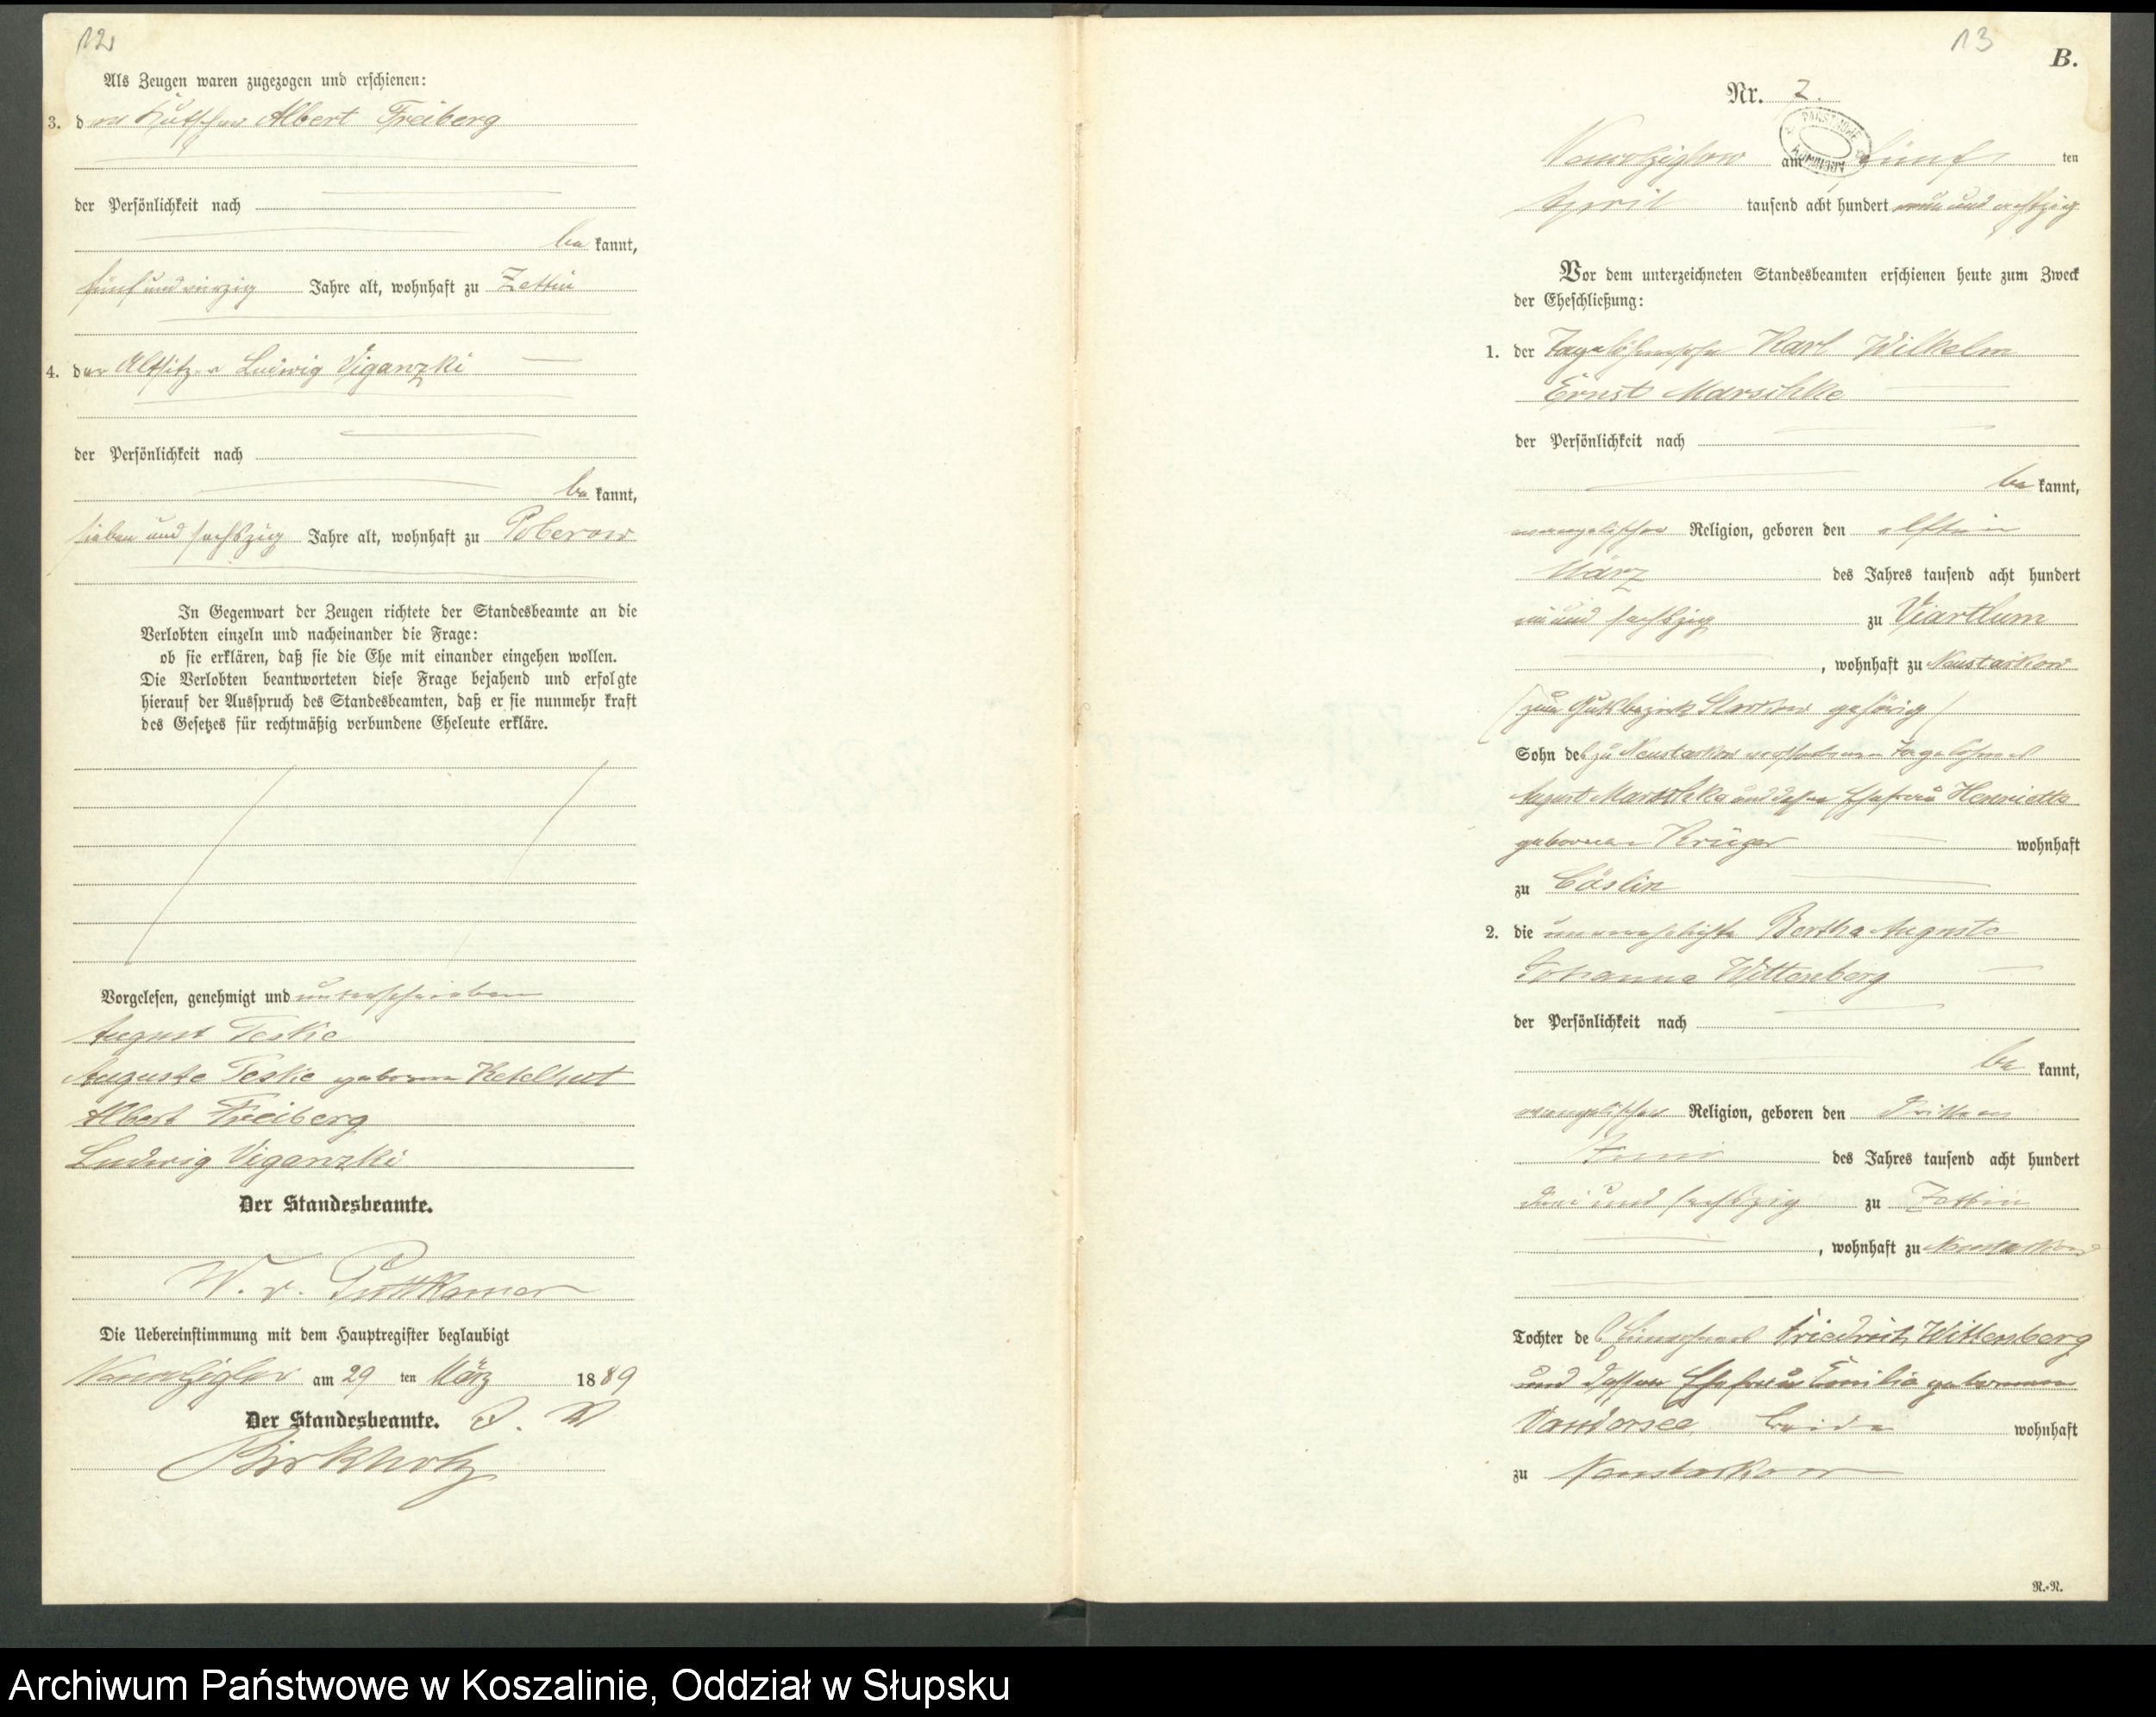 12
Als Zeugen waren zugezogen und erschienen:
3. der Kutscher Albert Freiberg
der Persönlichkeit nach
be kannt,
fünf und vierzig Jahre alt, wohnhaft zu Zettin
4. der Altsitzer Ludwig Viganzki
der Persönlichkeit nach
be kannt,
sieben und sechszig Jahre alt, wohnhaft zu Poberow
In Gegenwart der Zeugen richtete der Standesbeamte an die
Verlobten einzeln und nacheinander die Frage:
ob sie erklären, daß sie die Ehe mit einander eingehen wollen.
Die Verlobten beantworteten diese Frage bejahend und erfolgte
hierauf der Ausspruch des Standesbeamten, daß er sie nunmehr kraft
des Gesetzes für rechtmäßig verbundene Eheleute erkläre.
Vorgelesen, genehmigt und unterschrieben
August Teske
Auguste Teske geborene Ketelhut
Albert Freiberg
Ludwig Viganzki
Der Standesbeamte.
W. v. Puttkamer
Die Uebereinstimmung mit dem Hauptregister beglaubigt
am 29 ten März 1889
Der Standesbeamte. J. V.
Birkholz
13
B.
Nr. 2.
am fünf ten
April tausend acht hundert neun und achtzig
Vor dem unterzeichneten Standesbeamten erschienen heute zum Zweck
der Eheschließung:
1. der Tagelöhnersohn Karl Wilhelm
Ernst Marschke
der Persönlichkeit nach
be kannt,
evangelischer Religion, geboren den elften
März des Jahres tausend acht hundert
und sechszig zu Viartlum
, wohnhaft zu Neustarkow
(zum Gutsbezirk Starkow gehörig)
Sohn des zu Neustarkow verstorbenen Tagelöhners
August Marschke und dessen Ehefrau Henriette
geborenen Krüger wohnhaft
zu Cöslin
2. die unverehelichte Bertha Auguste
Johanne Wittenberg
der Persönlichkeit nach
be kannt,
evangelischer Religion, geboren den dritten
Juni des Jahres tausend acht hundert
drei und sechszig zu Zettin
, wohnhaft zu Neustarkow
Tochter des Friedrich Wittenberg
und dessen Ehefrau Emilie geborenen
Vandersee, beide wohnhaft
zu Neustarkow
R.-R.
Archiwum Państwowe w Koszalinie, Oddział w Słupsku